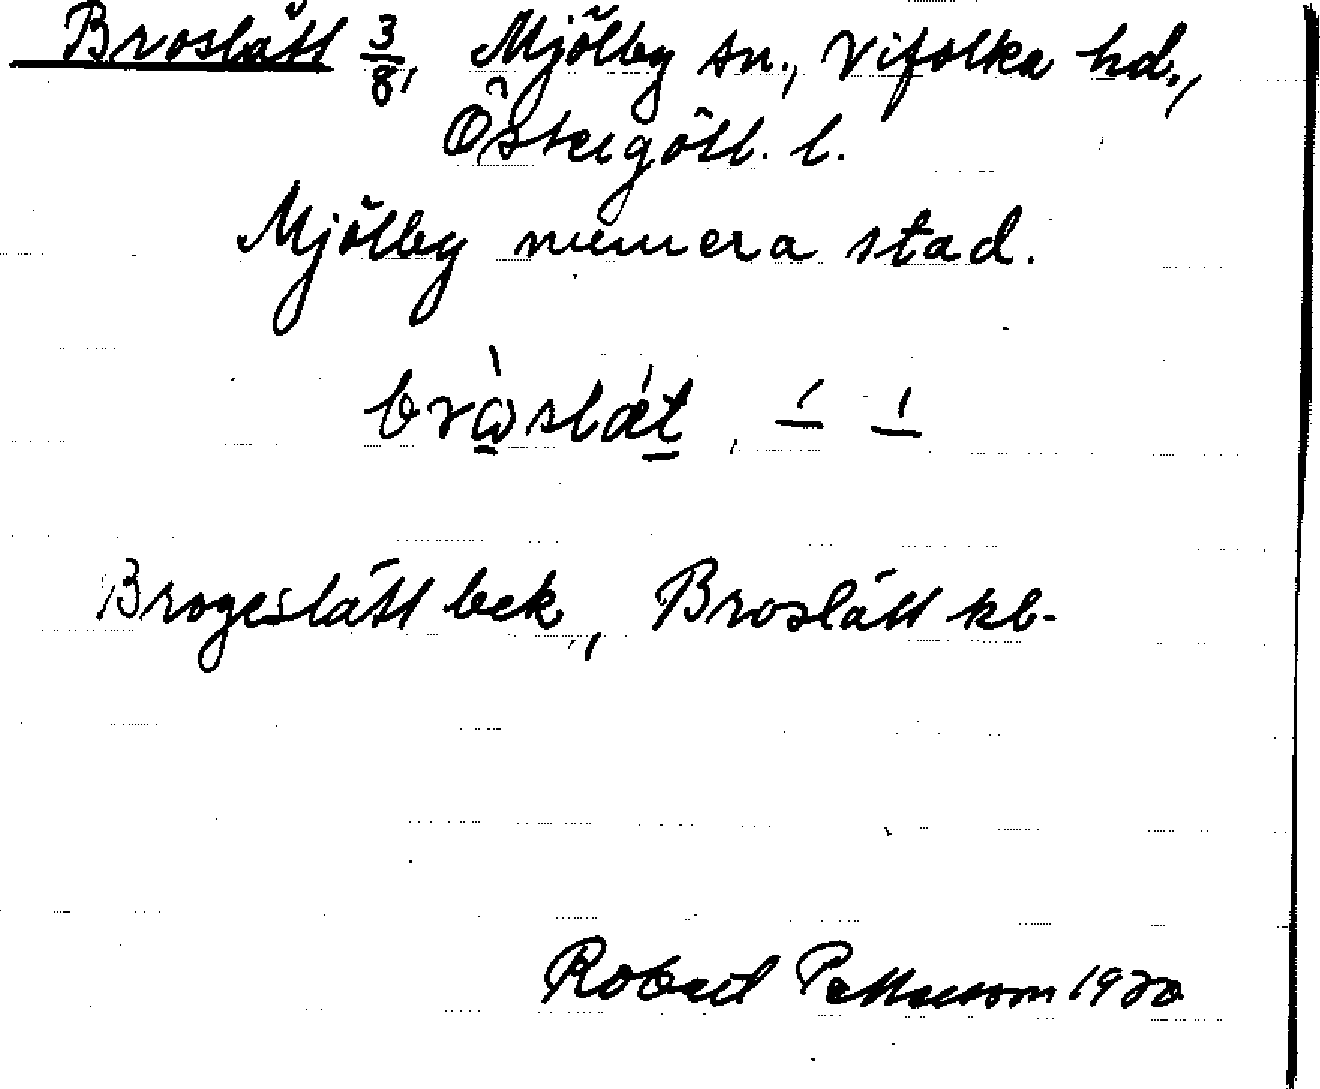 Broslätt 3/8, Mjölby sn., Vifolka hd.,
Östergötl. l.
Mjölby numera stad.
bròslǽt, – –
Brogeslätt bek, Broslätt kb-
Robert Pettersson 1920